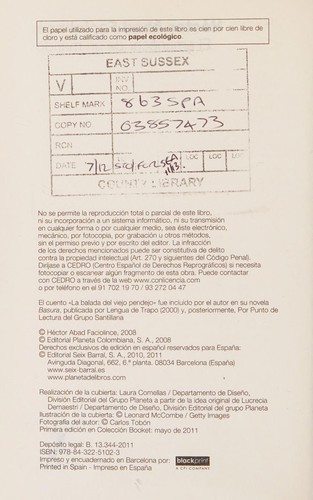 El papel utilizado para la impresión de este libro es cien por cien libre de
cloro y está calificado como papel ecológico.
EAST SUSSEX
V
INV
NO.
SHELF MARK 863 SPA
COPY NO 03857473
RCN
DATE 7/12 LOC LOC LOC
COUNTY LIBRARY
No se permite la reproducción total o parcial de este libro,
ni su incorporación a un sistema informático, ni su transmisión
en cualquier forma o por cualquier medio, sea éste electrónico,
mecánico, por fotocopia, por grabación u otros métodos,
sin el permiso previo y por escrito del editor. La infracción
de los derechos mencionados puede ser constitutiva de delito
contra la propiedad intelectual (Art. 270 y siguientes del Código Penal).
Diríjase a CEDRO (Centro Español de Derechos Reprográficos) si necesita
fotocopiar o escanear algún fragmento de esta obra. Puede contactar
con CEDRO a través de la web www.conlicencia.com
o por teléfono en el 91 702 19 70 / 93 272 04 47
El cuento «La balada del viejo pendejo» fue incluido por el autor en su novela
Basura, publicada por Lengua de Trapo (2000) y, posteriormente, Por Punto de
Lectura del Grupo Santillana
© Héctor Abad Faciolince, 2008
© Editorial Planeta Colombiana, S. A., 2008
Derechos exclusivos de edición en español reservados para España:
© Editorial Seix Barral, S. A., 2010, 2011
Avinguda Diagonal, 662, 6.ª planta. 08034 Barcelona (España)
www.seix-barral.es
www.planetadelibros.com
Realización de la cubierta: Laura Comellas / Departamento de Diseño,
División Editorial del Grupo Planeta a partir de la idea original de Lucrecia
Demaestri / Departamento de Diseño, División Editorial del grupo Planeta
Ilustración de la cubierta: © Leonard McCombe / Getty Images
Fotografía del autor: © Carlos Tobón
Primera edición en Colección Booket: mayo de 2011
Depósito legal: B. 13.344-2011
ISBN: 978-84-322-5102-3
Impreso y encuadernado en Barcelona por: blackprint
A CPI COMPANY
Printed in Spain - Impreso en España